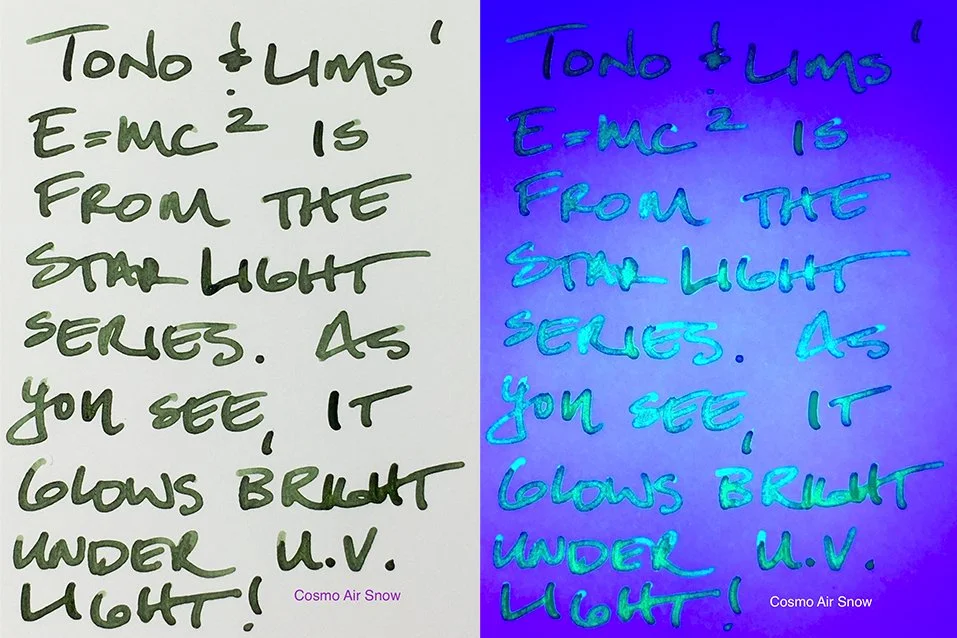 TONO & LIMS'
E=MC² IS
FROM THE
STAR LIGHT
SERIES. AS
YOU SEE, IT
GLOWS BRIGHT
UNDER U.V.
LIGHT!
Cosmo Air Snow
TONO & LIMS'
E=MC² IS
FROM THE
STAR LIGHT
SERIES. AS
YOU SEE, IT
GLOWS BRIGHT
UNDER U.V.
LIGHT!
Cosmo Air Snow